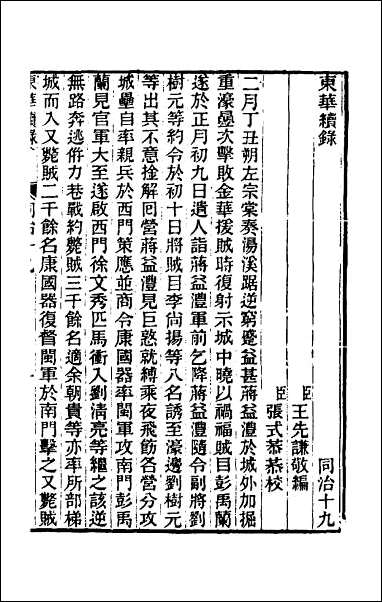 東華續錄
同治十九
臣王先謙敬編
臣張式恭恭校
二月丁丑朔左宗棠奏湯溪踞逆窮蹙益甚蔣益澧於城外加掘
重濠疊次擊敗金華援賊時復射示城中曉以禍福賊目彭禹蘭
遂於正月初九日遣人詣蔣益澧軍前乞降蔣益澧隨令副將劉
樹元等約令於初十日將賊目李尚揚等八名誘至濠邊劉樹元
等出其不意拴解回營蔣益澧見巨憝就縛乘夜飛飭各營分攻
城壘自率親兵於西門策應並商令康國器率閩軍攻南門彭禹
蘭見官軍大至遂啟西門徐文秀匹馬衝入劉清亮等繼之該逆
無路奔逃併力巷戰約斃賊三千餘名適余朝貴等亦率所部梯
城而入又斃賊二千餘名康國器復督閩軍於南門擊之又斃賊
東華續錄
同治十九
一